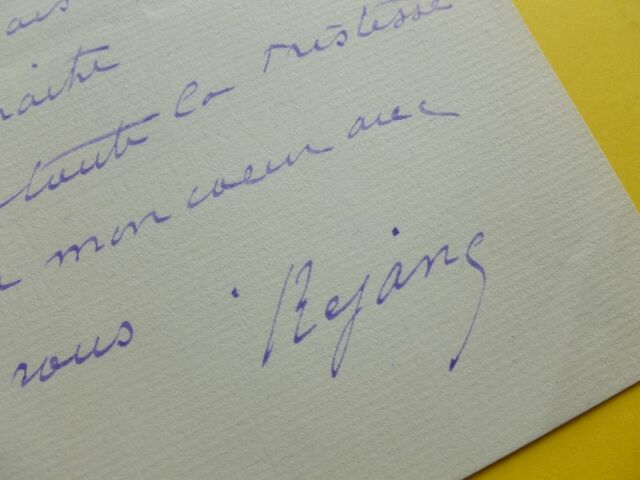 ais
raître
toute la tristesse
mon coeur avec
vous Rejane